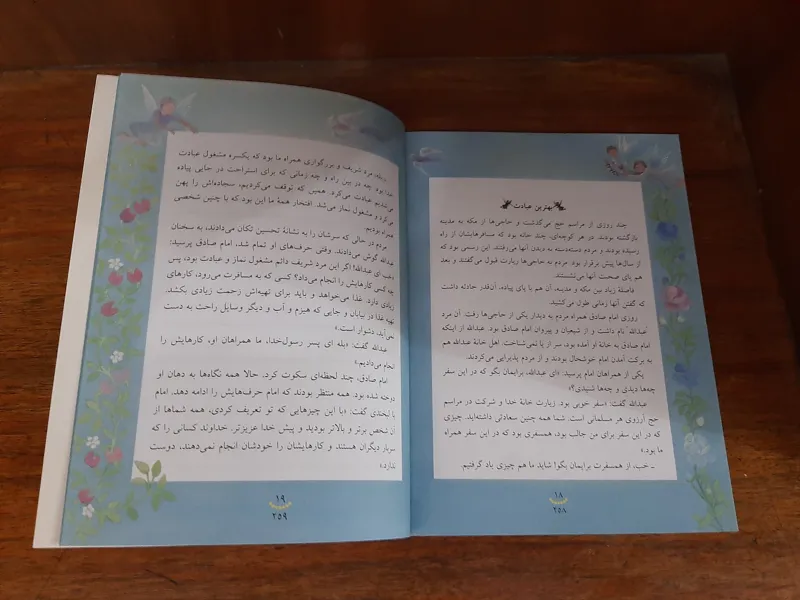 بهترین عبادت
چند روزی از مراسم حج می‌گذشت و حاجی‌ها از مکه به مدینه
بازگشته بودند. در هر کوچه‌ای، چند خانه بود که مسافرهایشان از راه
رسیده بودند و مردم دسته‌دسته به دیدن آنها می‌رفتند. این رسمی بود که
از سال‌ها پیش برقرار بود. مردم به حاجی‌ها زیارت قبول می‌گفتند و بعد
هم پای صحبت آنها می‌نشستند.
فاصلهٔ زیاد بین مکه و مدینه، آن هم با پای پیاده، آن‌قدر حادثه داشت
که گفتن آنها زمانی طول می‌کشید.
روزی امام صادق همراه مردم به دیدار یکی از حاجی‌ها رفت. آن مرد
عبدالله نام داشت و از شیعیان و پیروان امام صادق بود. عبدالله از اینکه
امام صادق به خانهٔ او آمده بود، سر از پا نمی‌شناخت. اهل خانهٔ عبدالله هم
به برکت آمدن امام خوشحال بودند و از مردم پذیرایی می‌کردند.
یکی از همراهان امام پرسید: «ای عبدالله، برایمان بگو که در این سفر
چه‌ها دیدی و چه‌ها شنیدی؟»
عبدالله گفت: «سفر خوبی بود. زیارت خانهٔ خدا و شرکت در مراسم
حج آرزوی هر مسلمانی است. شما همه چنین سعادتی داشته‌اید. چیزی
که در این سفر برای من جالب بود، همسفری بود که در این سفر همراه
ما بود.»
ـ خب، از همسفرت برایمان بگو! شاید ما هم چیزی یاد گرفتیم.
۱۸
۲۵۸
ـ بله، مرد شریف و بزرگواری همراه ما بود که یکسره مشغول عبادت
خدا بود. چه در بین راه و چه زمانی که برای استراحت در جایی پیاده
می‌شدیم عبادت می‌کرد. همین که توقف می‌کردیم، سجاده‌اش را پهن
می‌کرد و مشغول نماز می‌شد. افتخار همهٔ ما این بود که با چنین شخصی
همراه بودیم.
مردم در حالی که سرشان را به نشانهٔ تحسین تکان می‌دادند، به سخنان
عبدالله گوش می‌دادند. وقتی حرف‌های او تمام شد، امام صادق پرسید:
«خب ای عبدالله! اگر این مرد شریف دائم مشغول نماز و عبادت بود، پس
چه کسی کارهایش را انجام می‌داد؟ کسی که به مسافرت می‌رود، کارهای
زیادی دارد. غذا می‌خواهد و باید برای تهیه‌اش زحمت زیادی بکشد.
تهیهٔ غذا در بیابان و جایی که هیزم و آب و دیگر وسایل راحت به دست
نمی‌آید، دشوار است.»
عبدالله گفت: «بله ای پسر رسول‌خدا، ما همراهان او، کارهایش را
انجام می‌دادیم.»
امام صادق، چند لحظه‌ای سکوت کرد. حالا همه نگاه‌ها به دهان او
دوخته شده بود. همه منتظر بودند که امام حرف‌هایش را ادامه دهد. امام
با لبخندی گفت: «با این چیزهایی که تو تعریف کردی، همه شماها از
آن شخص برتر و بالاتر بودید و پیش خدا عزیزتر. خداوند کسانی را که
سربار دیگران هستند و کارهایشان را خودشان انجام نمی‌دهند، دوست
ندارد.»
۱۹
۲۵۹